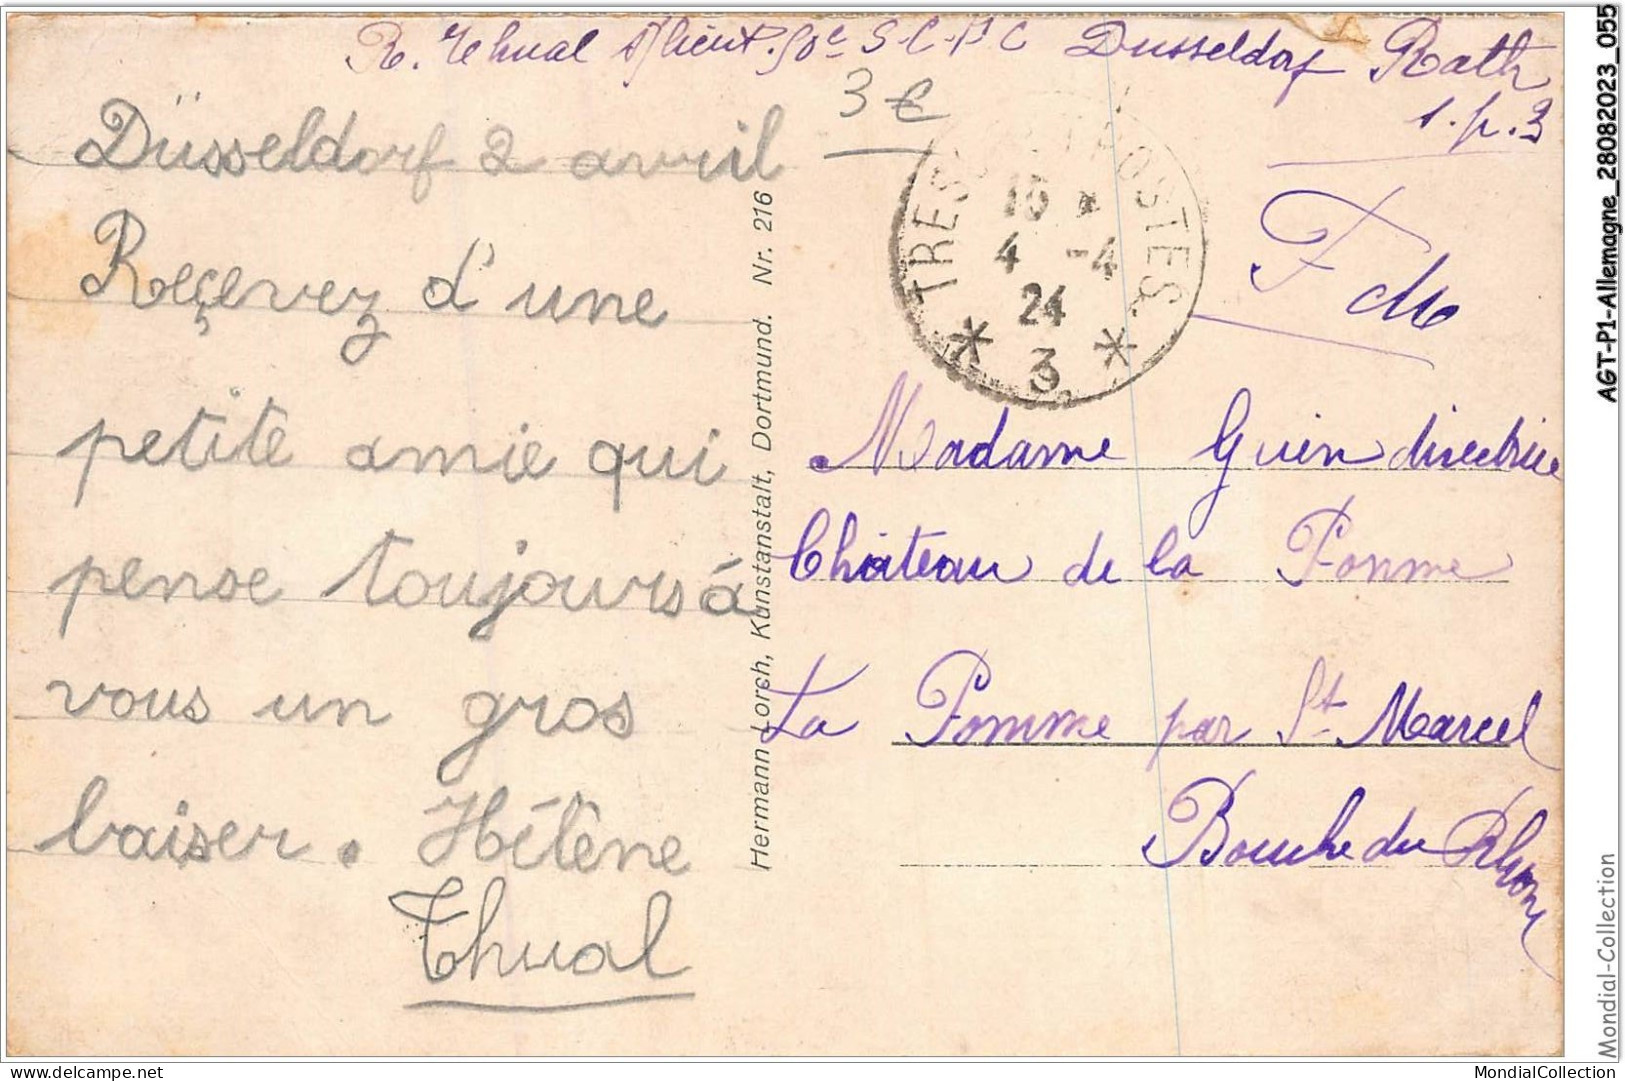 R. Thual s/lieut. 50e S.C.P.C Dusseldorf Rath
s.p.3
3 €
Düsseldorf 2 avril
Reçevez d'une
petite amie qui
pense toujours à
vous un gros
baiser. Hélène
Thual
Hermann Lorsch, Kunstanstalt, Dortmund. Nr. 216
TRESOR ET POSTES
15 *
4 -4
24
* 3 *
F M
Madame Guin directrice
Château de la Pomme
La Pomme par St Marcel
Bouche du Rhone
AGT-P1-Allemagne_28082023_055
Mondial-Collection
delcampe.net
MondialCollection